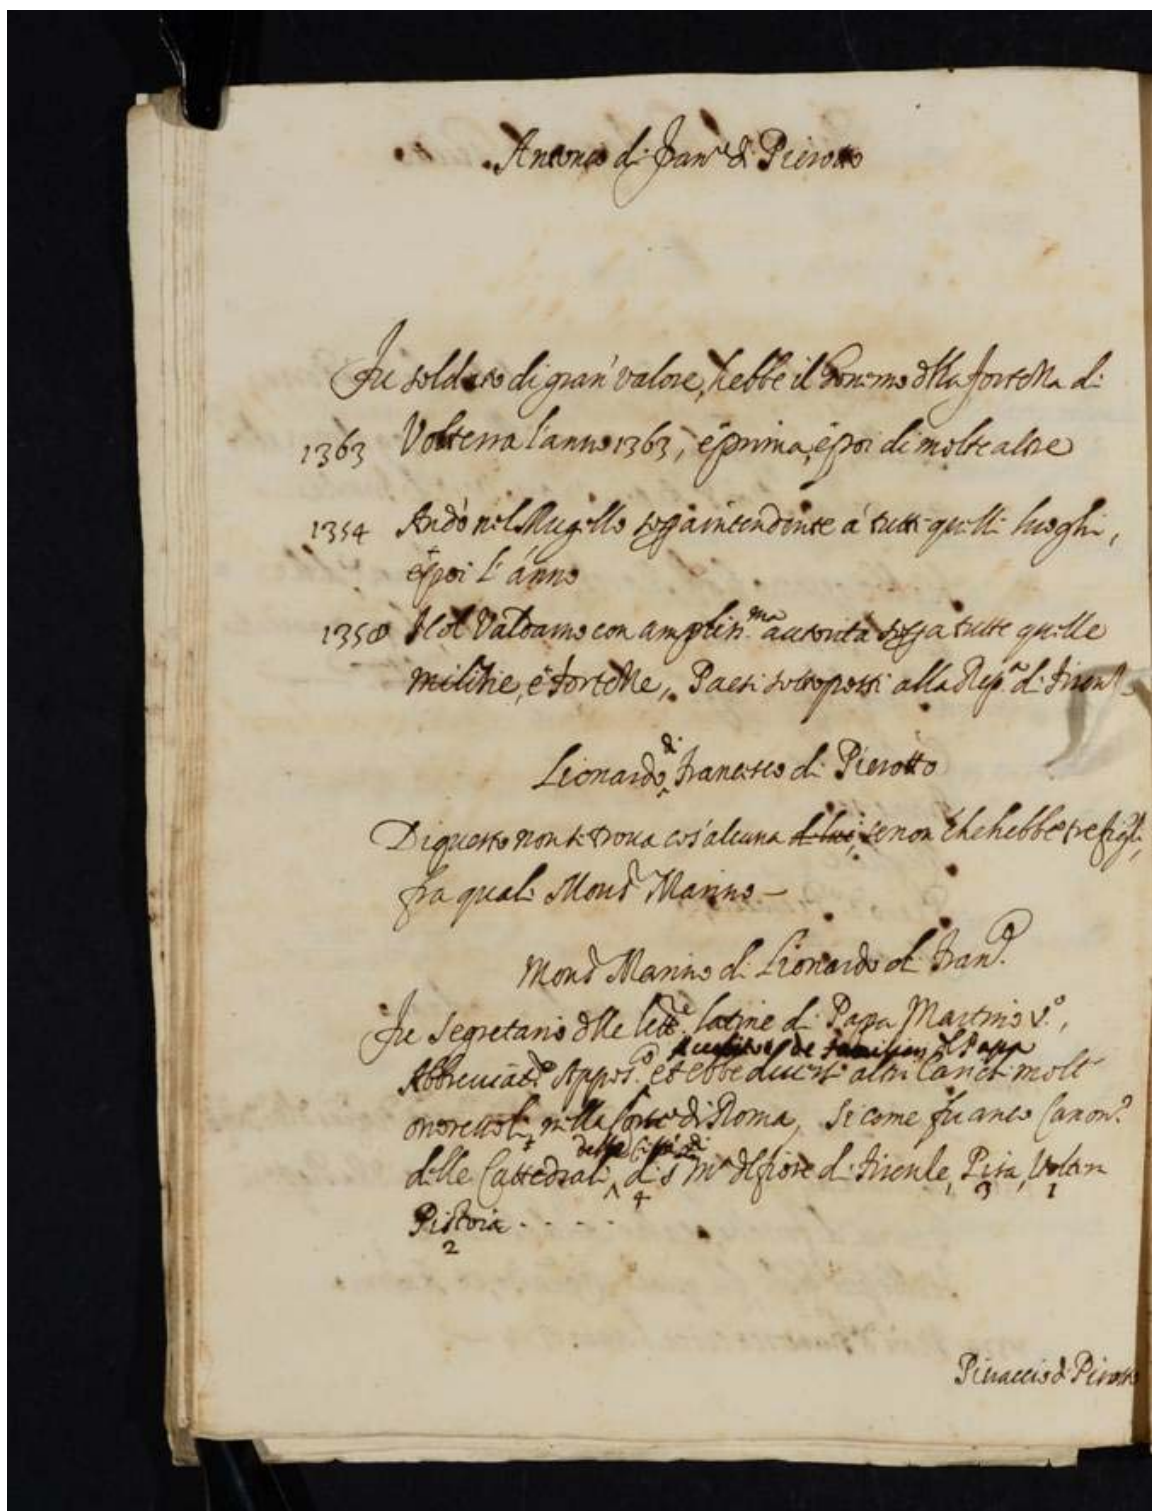 Antonio di Fran.co di Pierotto
Fu soldato di gran valore, hebbe il della fortezza di
1363 Volterra l'anno 1363, e prima, e poi di molte altre
1354 Andò nel Mugello sopraintendente à tutti quelli luoghi,
e poi l'anno
1358 Nel Valdarno con amplis.ma autorità sopra tutte quelle
militie, e fortezze, Paesi sottoposti alla Rep.a di Firenze
Lionardo di Francesco di Pierotto
Di questo non si trova cos'alcuna di lui, se non che hebbe tre figli,
fra quali Mons.r Marino —
Mons.r Marino di Lionardo di Fran.co
Fu Segretario delle lett.e latine di Papa Martino V.o,
del Papa
Abbreviat.e Appos.co et ebbe diversi altri Carichi molt
onorevoli nella Corte di Roma, si come fu anco Canon.co
della Città di
delle Cattedrali di S. M.a del fiore di Firenze, Pisa, Volterra
4 3 1
Pistoia - - - -
2
Pieraccio di Pierotto